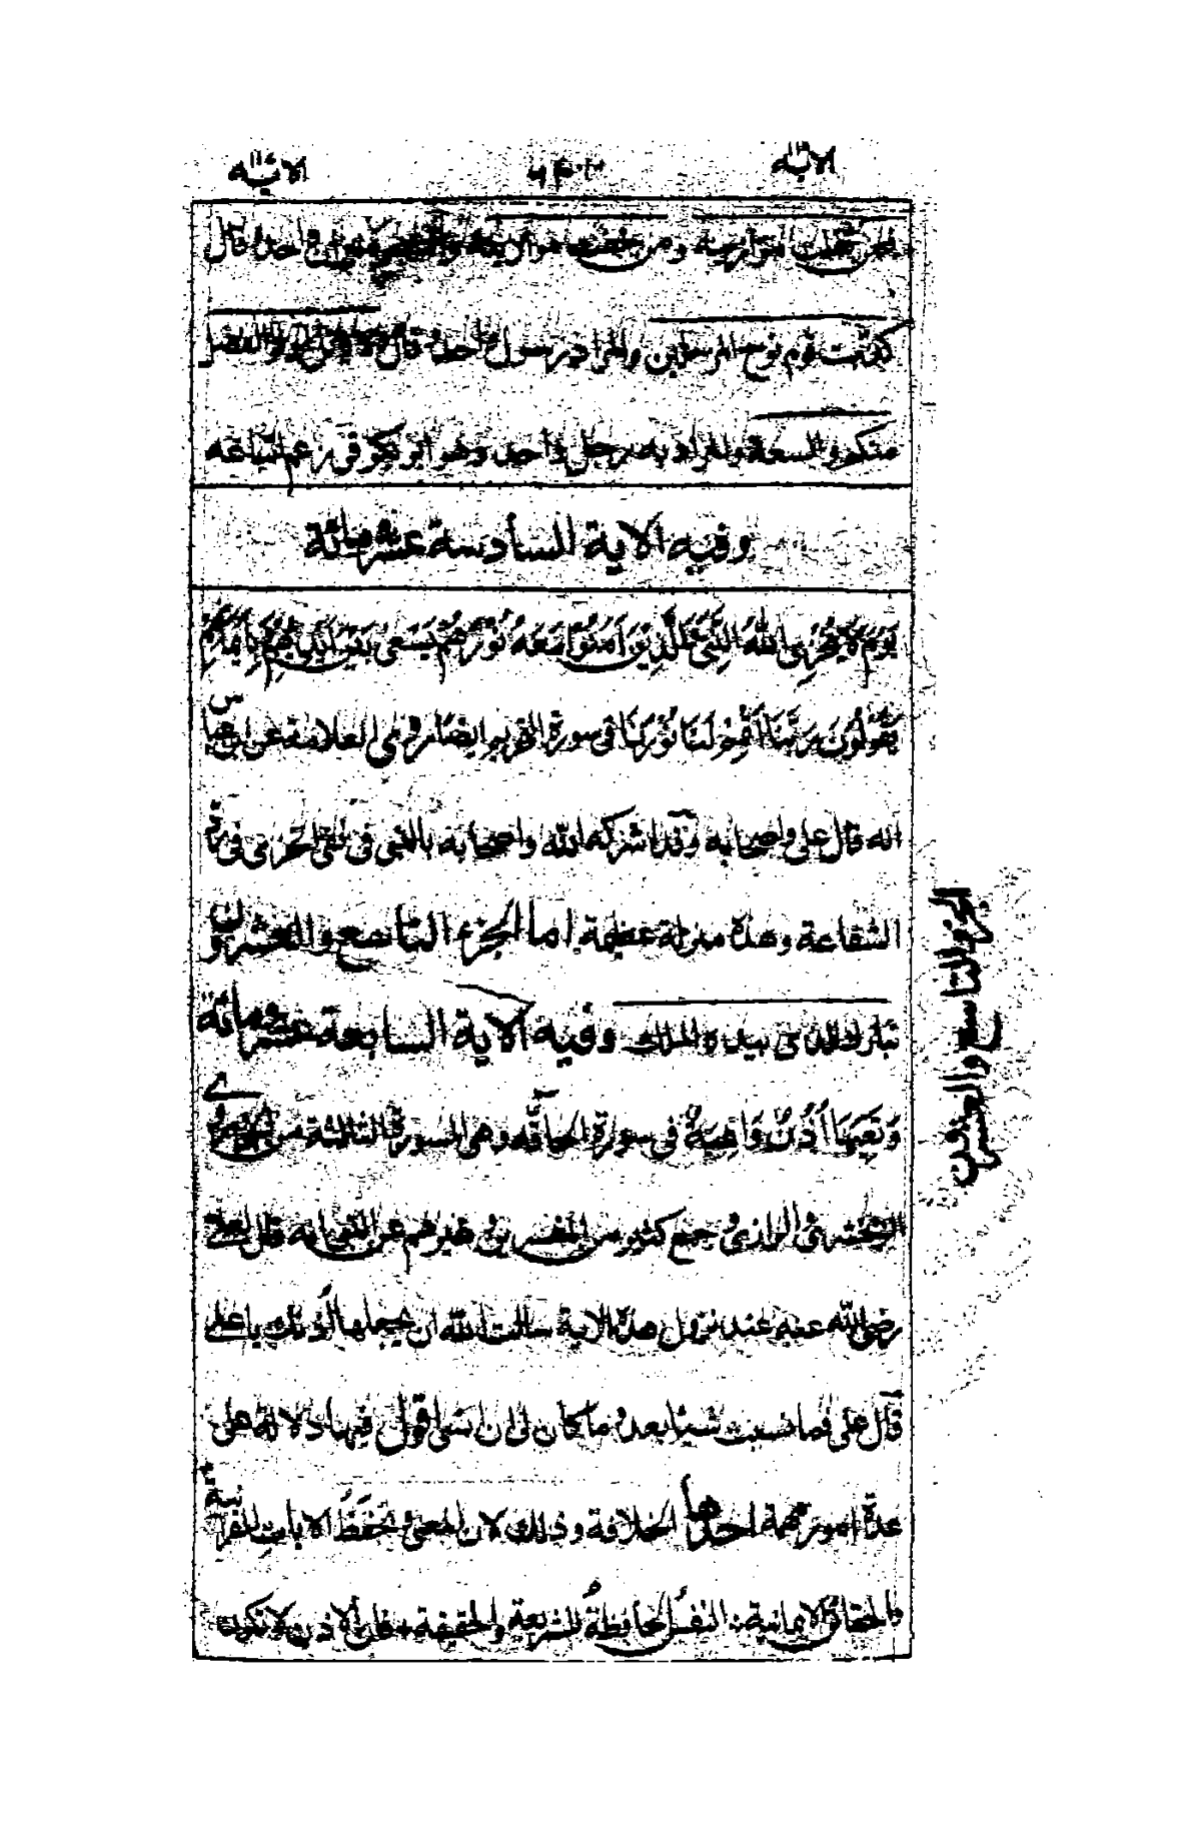 الآية ٢٠٣ الآية
فمن ثقلت موازينه ومن خفت واحدا قال
كذبت قوم نوح المرسلين والمراد رسول واحد قال الفضل
منكم والسعة والمراد به رجل واحد وهو ابو بكر في زعم اتباعه
وفيه الاية السادسة عشر مائة
يَوْمَ لَا يُخْزِي اللهُ النَّبِيَّ وَالَّذِيْنَ اٰمَنُوْا مَعَهُ نُوْرُهُمْ يَسْعٰى بَيْنَ اَيْدِيْهِمْ وَبِاَيْمَانِهِمْ
يَقُوْلُوْنَ رَبَّنَا اَتْمِمْ لَنَا نُوْرَنَا في سورة التحريم ايضا روى العلامة عن ابن عباس
انه قال علي واصحابه وقد اشركه الله واصحابه بالنبي في نفي الخزي في
الشفاعة وهذه منزلة عظيمة اما الجزء التاسع والعشرون
تبارك الذي بيده الملك وفيه الاية السابعة عشر مائة
وَتَعِيَهَا اُذُنٌ وَاعِيَةٌ في سورة الحاقّه وهي السورة الثالثة من
الزمخشري والرازي وجمع كثير من المفسرين وغيرهم عن النبي انه قال لعلي
رضي الله عنه عند نزول هذه الاية سالت الله ان يجعلها اذنك يا علي
قال علي فما نسيت شيئا بعد وما كان لي ان انسى اقول فيها دلالة على
عدة امور مهمة احدها الخلافة وذلك لان المعنى وتحفظ الايات القرآنية
والحقائق الايمانية النفس الحافظة للشريعة والحقيقة فان الاذن لا تكون
الجزء التاسع والعشرين